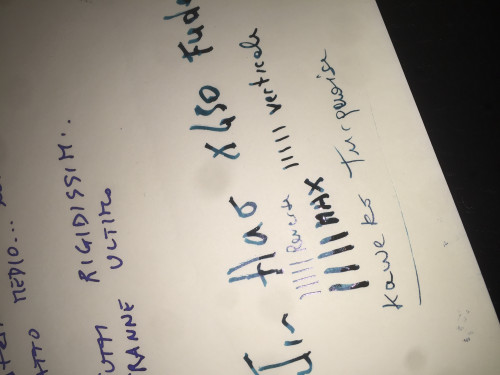 MEDIO...
TUTTI RIGIDISSIM...
TRANNE ULTIMO
Jin Hao x450 Fude
Reverse verticale
MAX
Kaweko Turquoise